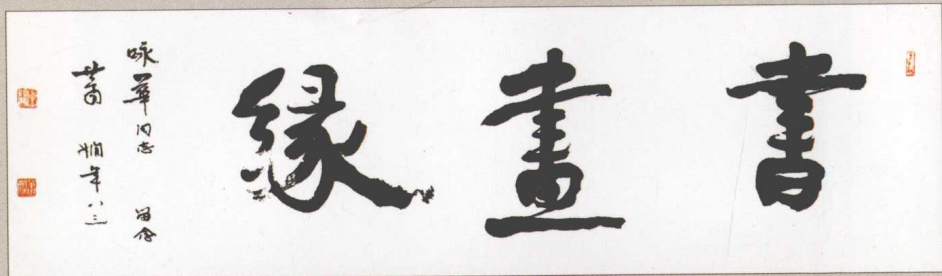 書畫緣
咏華同志 留念
黄 年八三